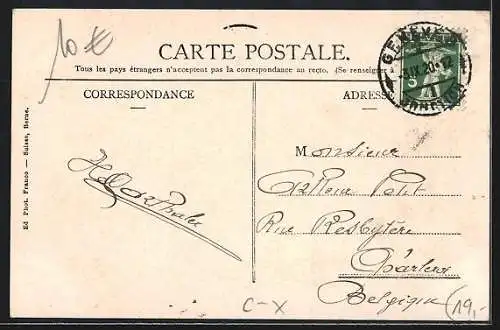 10 €
CARTE POSTALE.
Tous les pays étrangers n'acceptent pas la correspondance au recto. (Se renseigner
CORRESPONDANCE
ADRESSE
GENEVE
5
1
Ed Phot. Franco — Suisse, Berne.
Monsieur
Petit
Rue Presbytère
Belgique
C-X
19,-